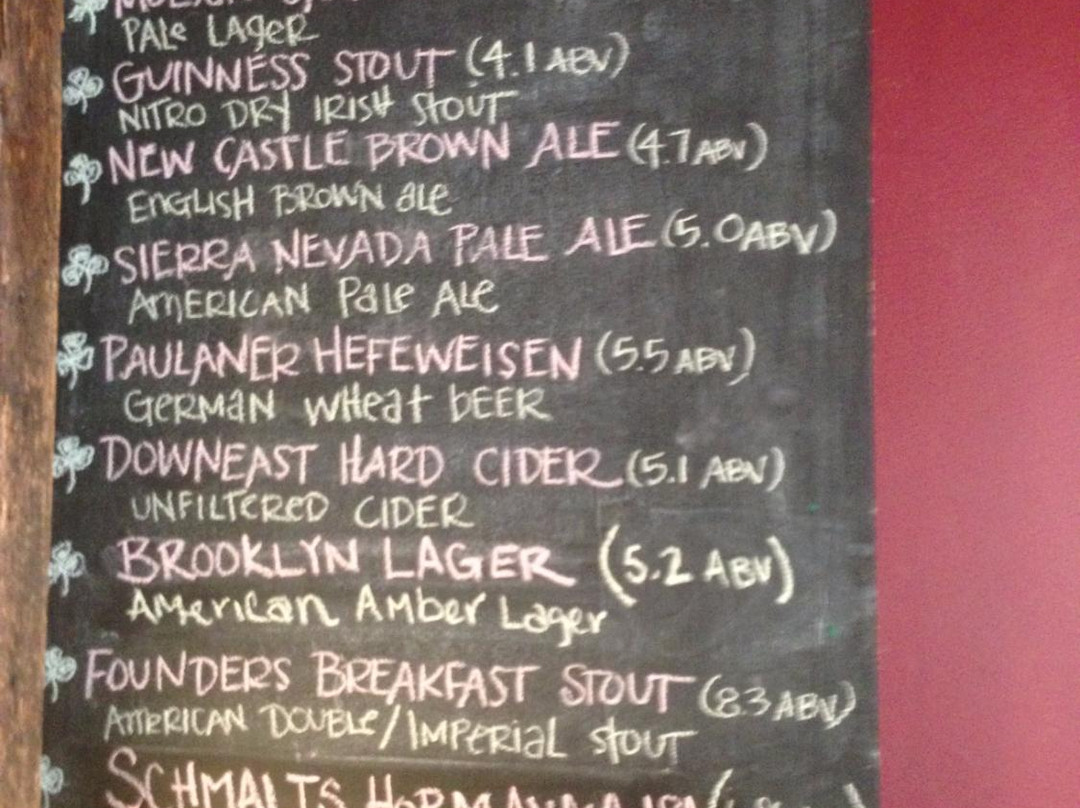 PALE LAGER
GUINNESS STOUT (4.1 ABV)
NITRO DRY IRISH STOUT
NEW CASTLE BROWN ALE (4.7 ABV)
ENGLISH BROWN ale
SIERRA NEVADA PALE ALE (5.0 ABV)
AMERICAN Pale ALe
PAULANER HEFEWEISEN (5.5 ABV)
GERMAN WHeat bEER
DOWNEAST HARD CIDER (5.1 ABV)
UNFILTERED CIDER
BROOKLYN LAGER (5.2 ABV)
American Amber Lager
FOUNDERS BREAKFAST STOUT (8.3 ABV)
AMERICAN DOUBLE/IMPERIAL STOUT
SCHMALTS